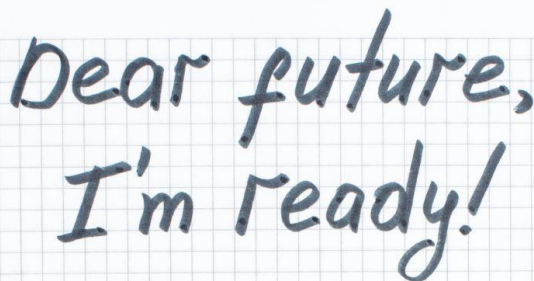 Dear future,
I'm ready!